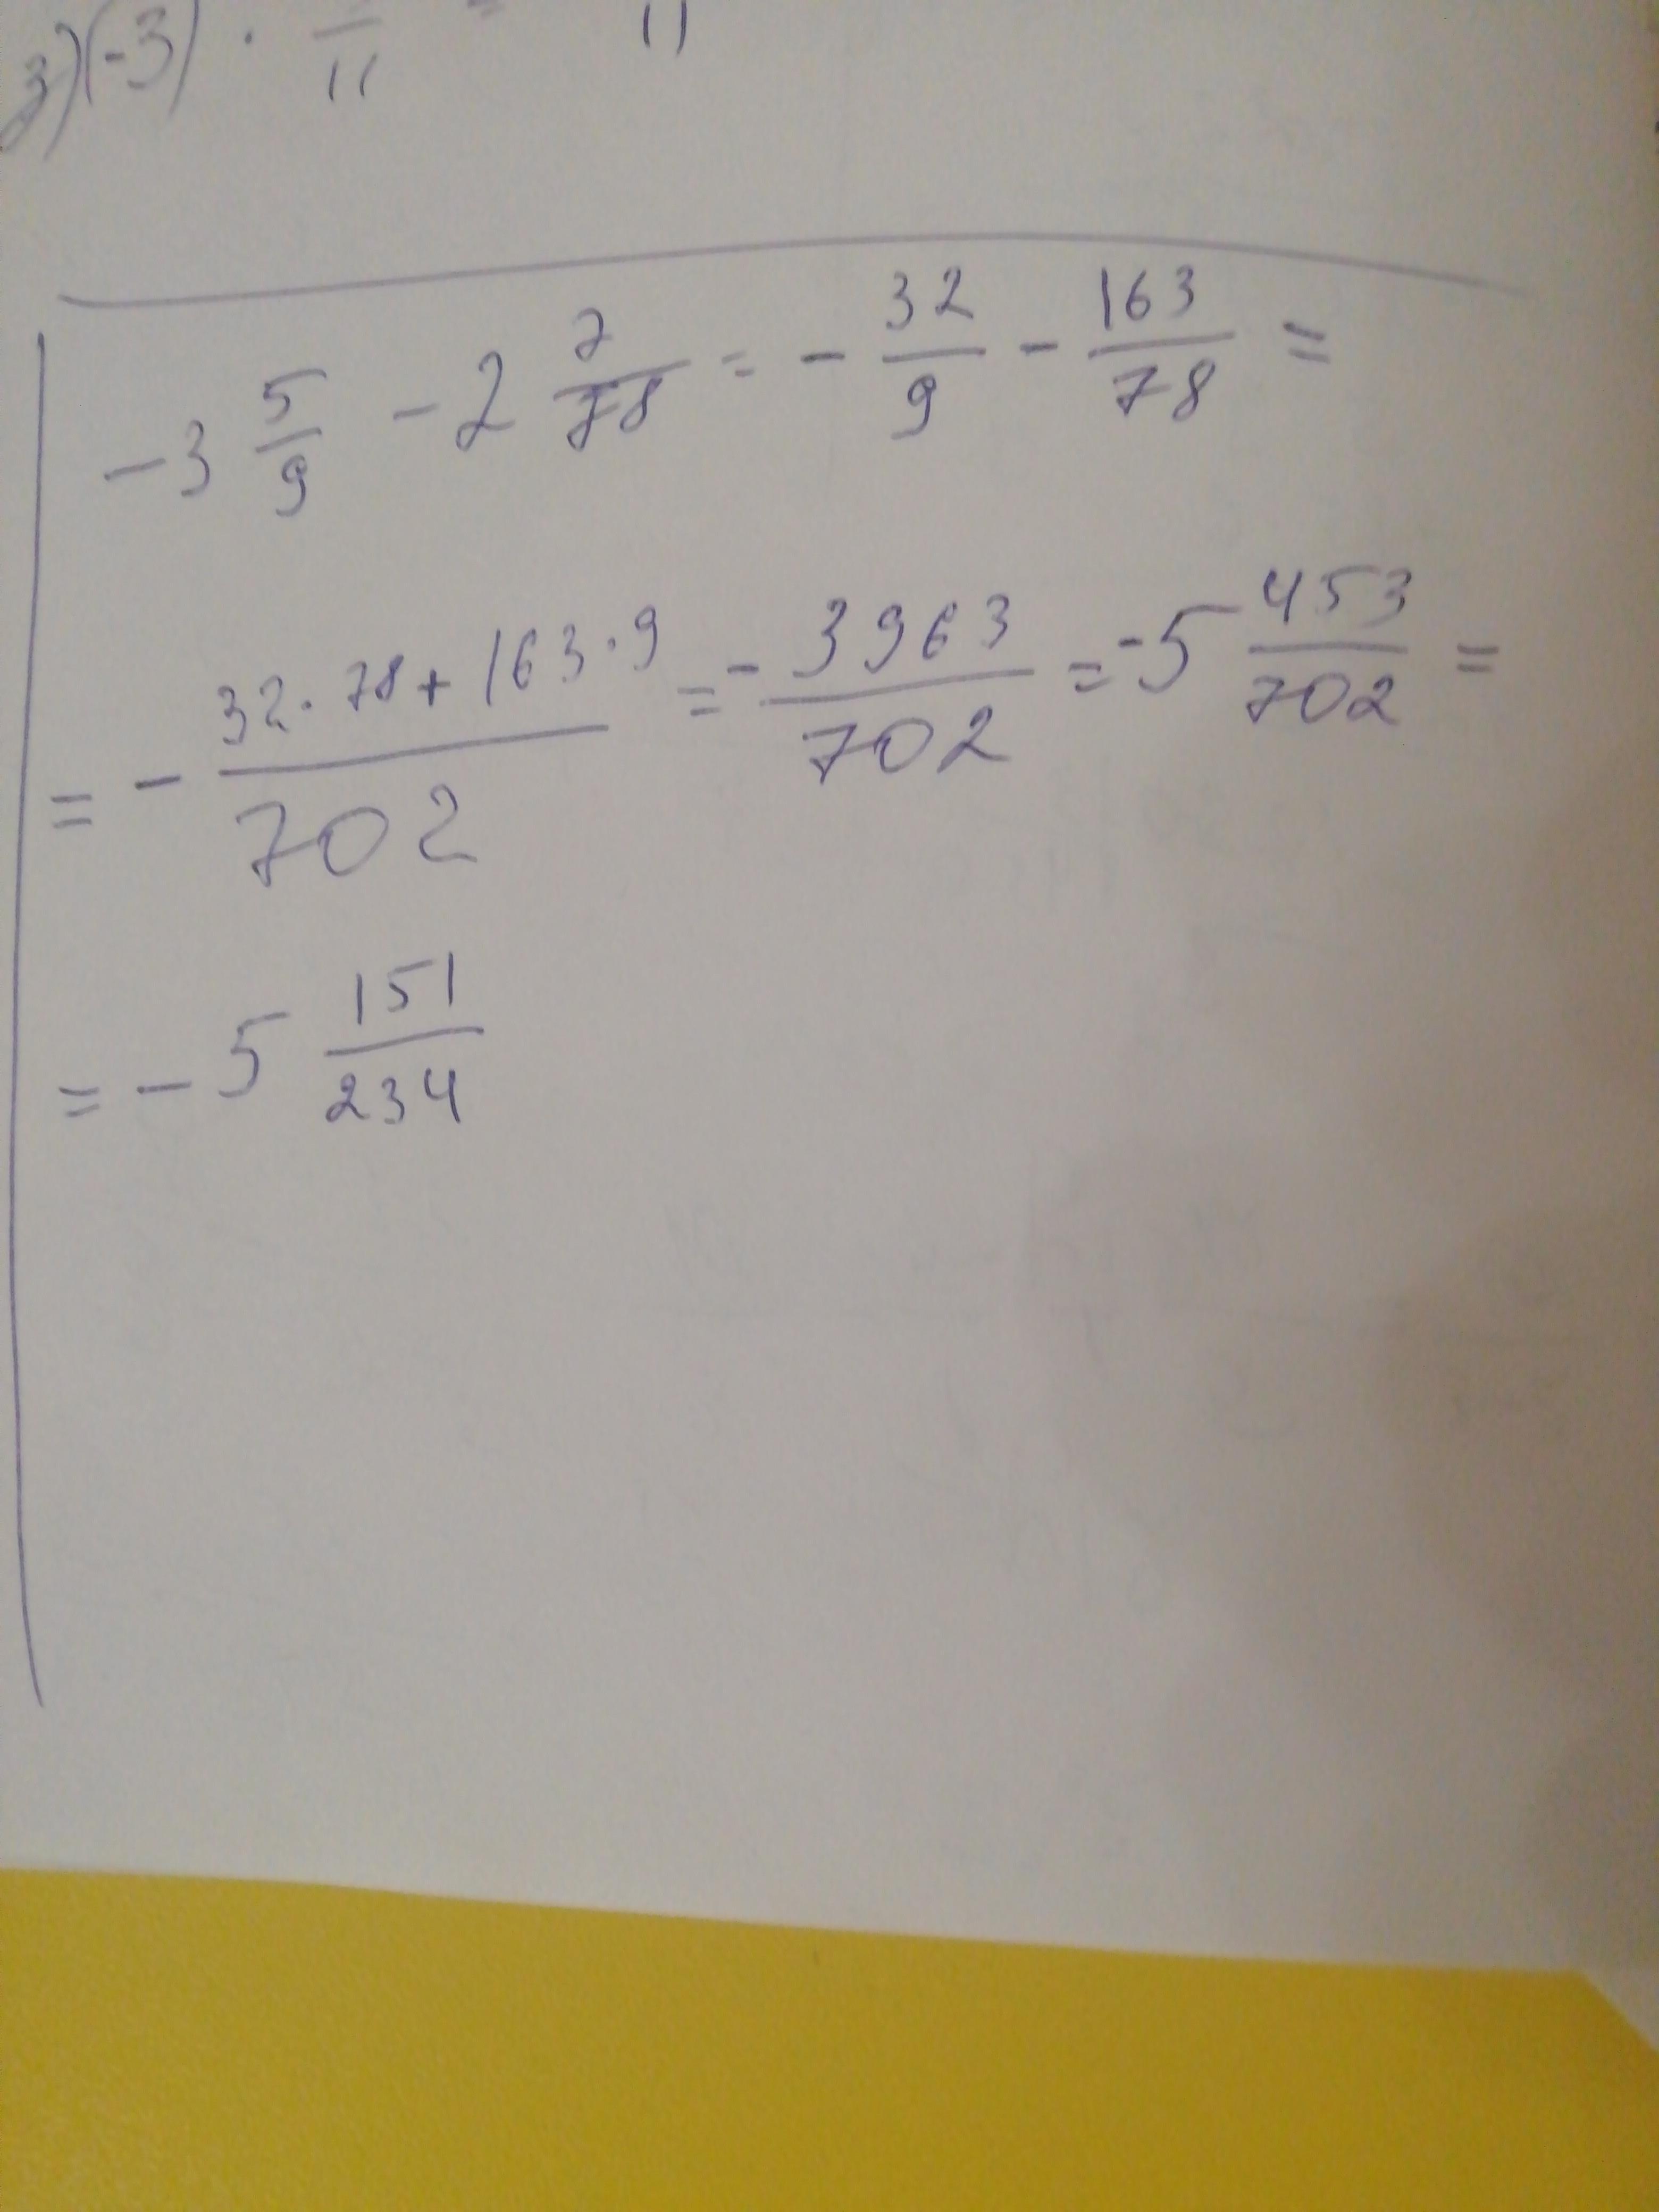 3)(-3) · —/11 = 11
-3 5/9 - 2 7/78 = - 32/9 - 163/78 =
= - (32·78+163·9)/702 = - 3963/702 = -5 453/702 =
= - 5 151/234